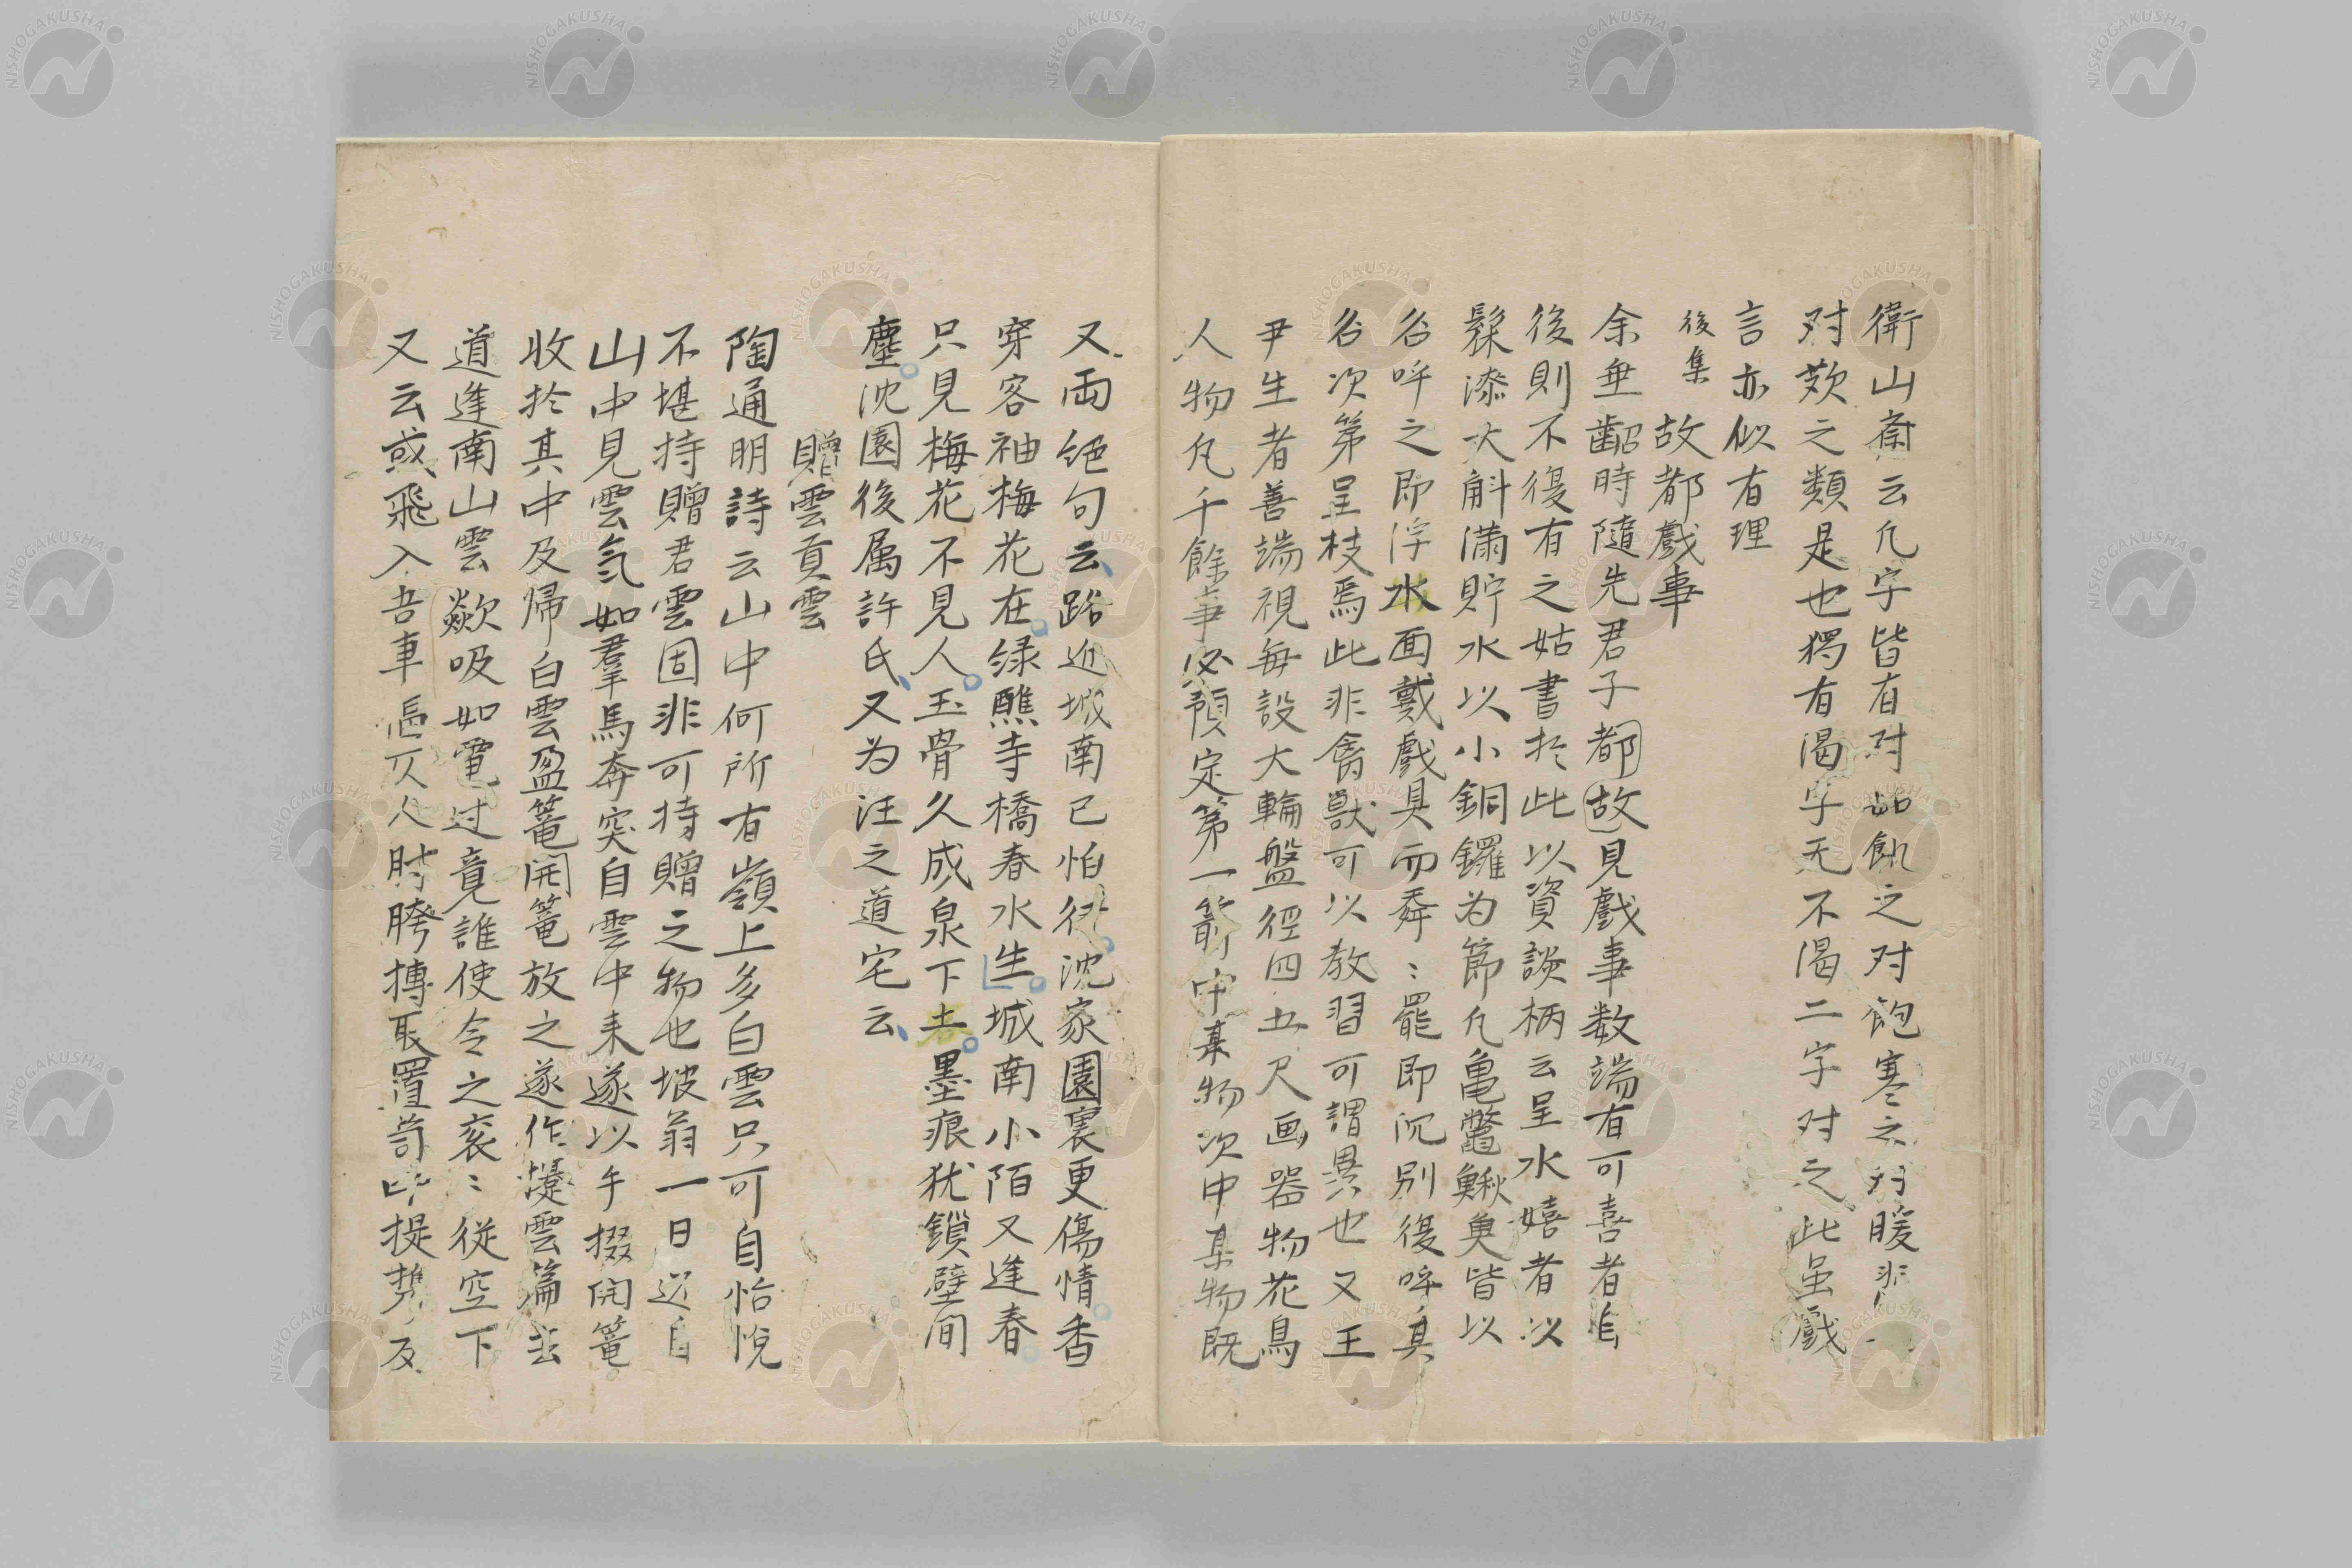 衛山斎云凢字皆有对如飢之对飽寒之对暖非
对欸之類是也獨有渴字无不渴二字对之此虽戲
言亦似有理
後集 故都戲事
余垂齠時隨先君子都故見戲事数端有可喜者自
後則不復有之姑書於此以資談柄云呈水嬉者以
髹漆大斛满貯水以小銅鑼为節凢亀鼈鰍奐皆以
名呼之即浮水面戴戲具而舞〻罷即沉别復呼其
名次第呈枝焉此非禽獸可以教習可謂異也又王
尹生者善端視每設大輪盤徑四五尺画器物花鳥
人物凢千餘事必預定第一箭中某物次中某物既
又両絕句云路近城南已怕行沈家園裏更傷情香
穿客袖梅花在緑蘸寺橋春水生城南小陌又逢春
只見梅花不見人玉骨久成泉下土墨痕犹鎖壁间
塵沈園後属許氏又为汪之道宅云
贈雲貢雲
陶通明詩云山中何所有嶺上多白雲只可自怡悅
不堪持贈君雲固非可持贈之物也坡翁一日还自
山中見雲気如羣馬奔突自雲中来遂以手掇開篭
收於其中及帰白雲盈篭開篭放之遂作攓雲篇云
道逢南山雲歘吸如電过竟誰使令之衮〻従空下
又云或飛入吾車偪仄人肘胯摶取置笥中提携反